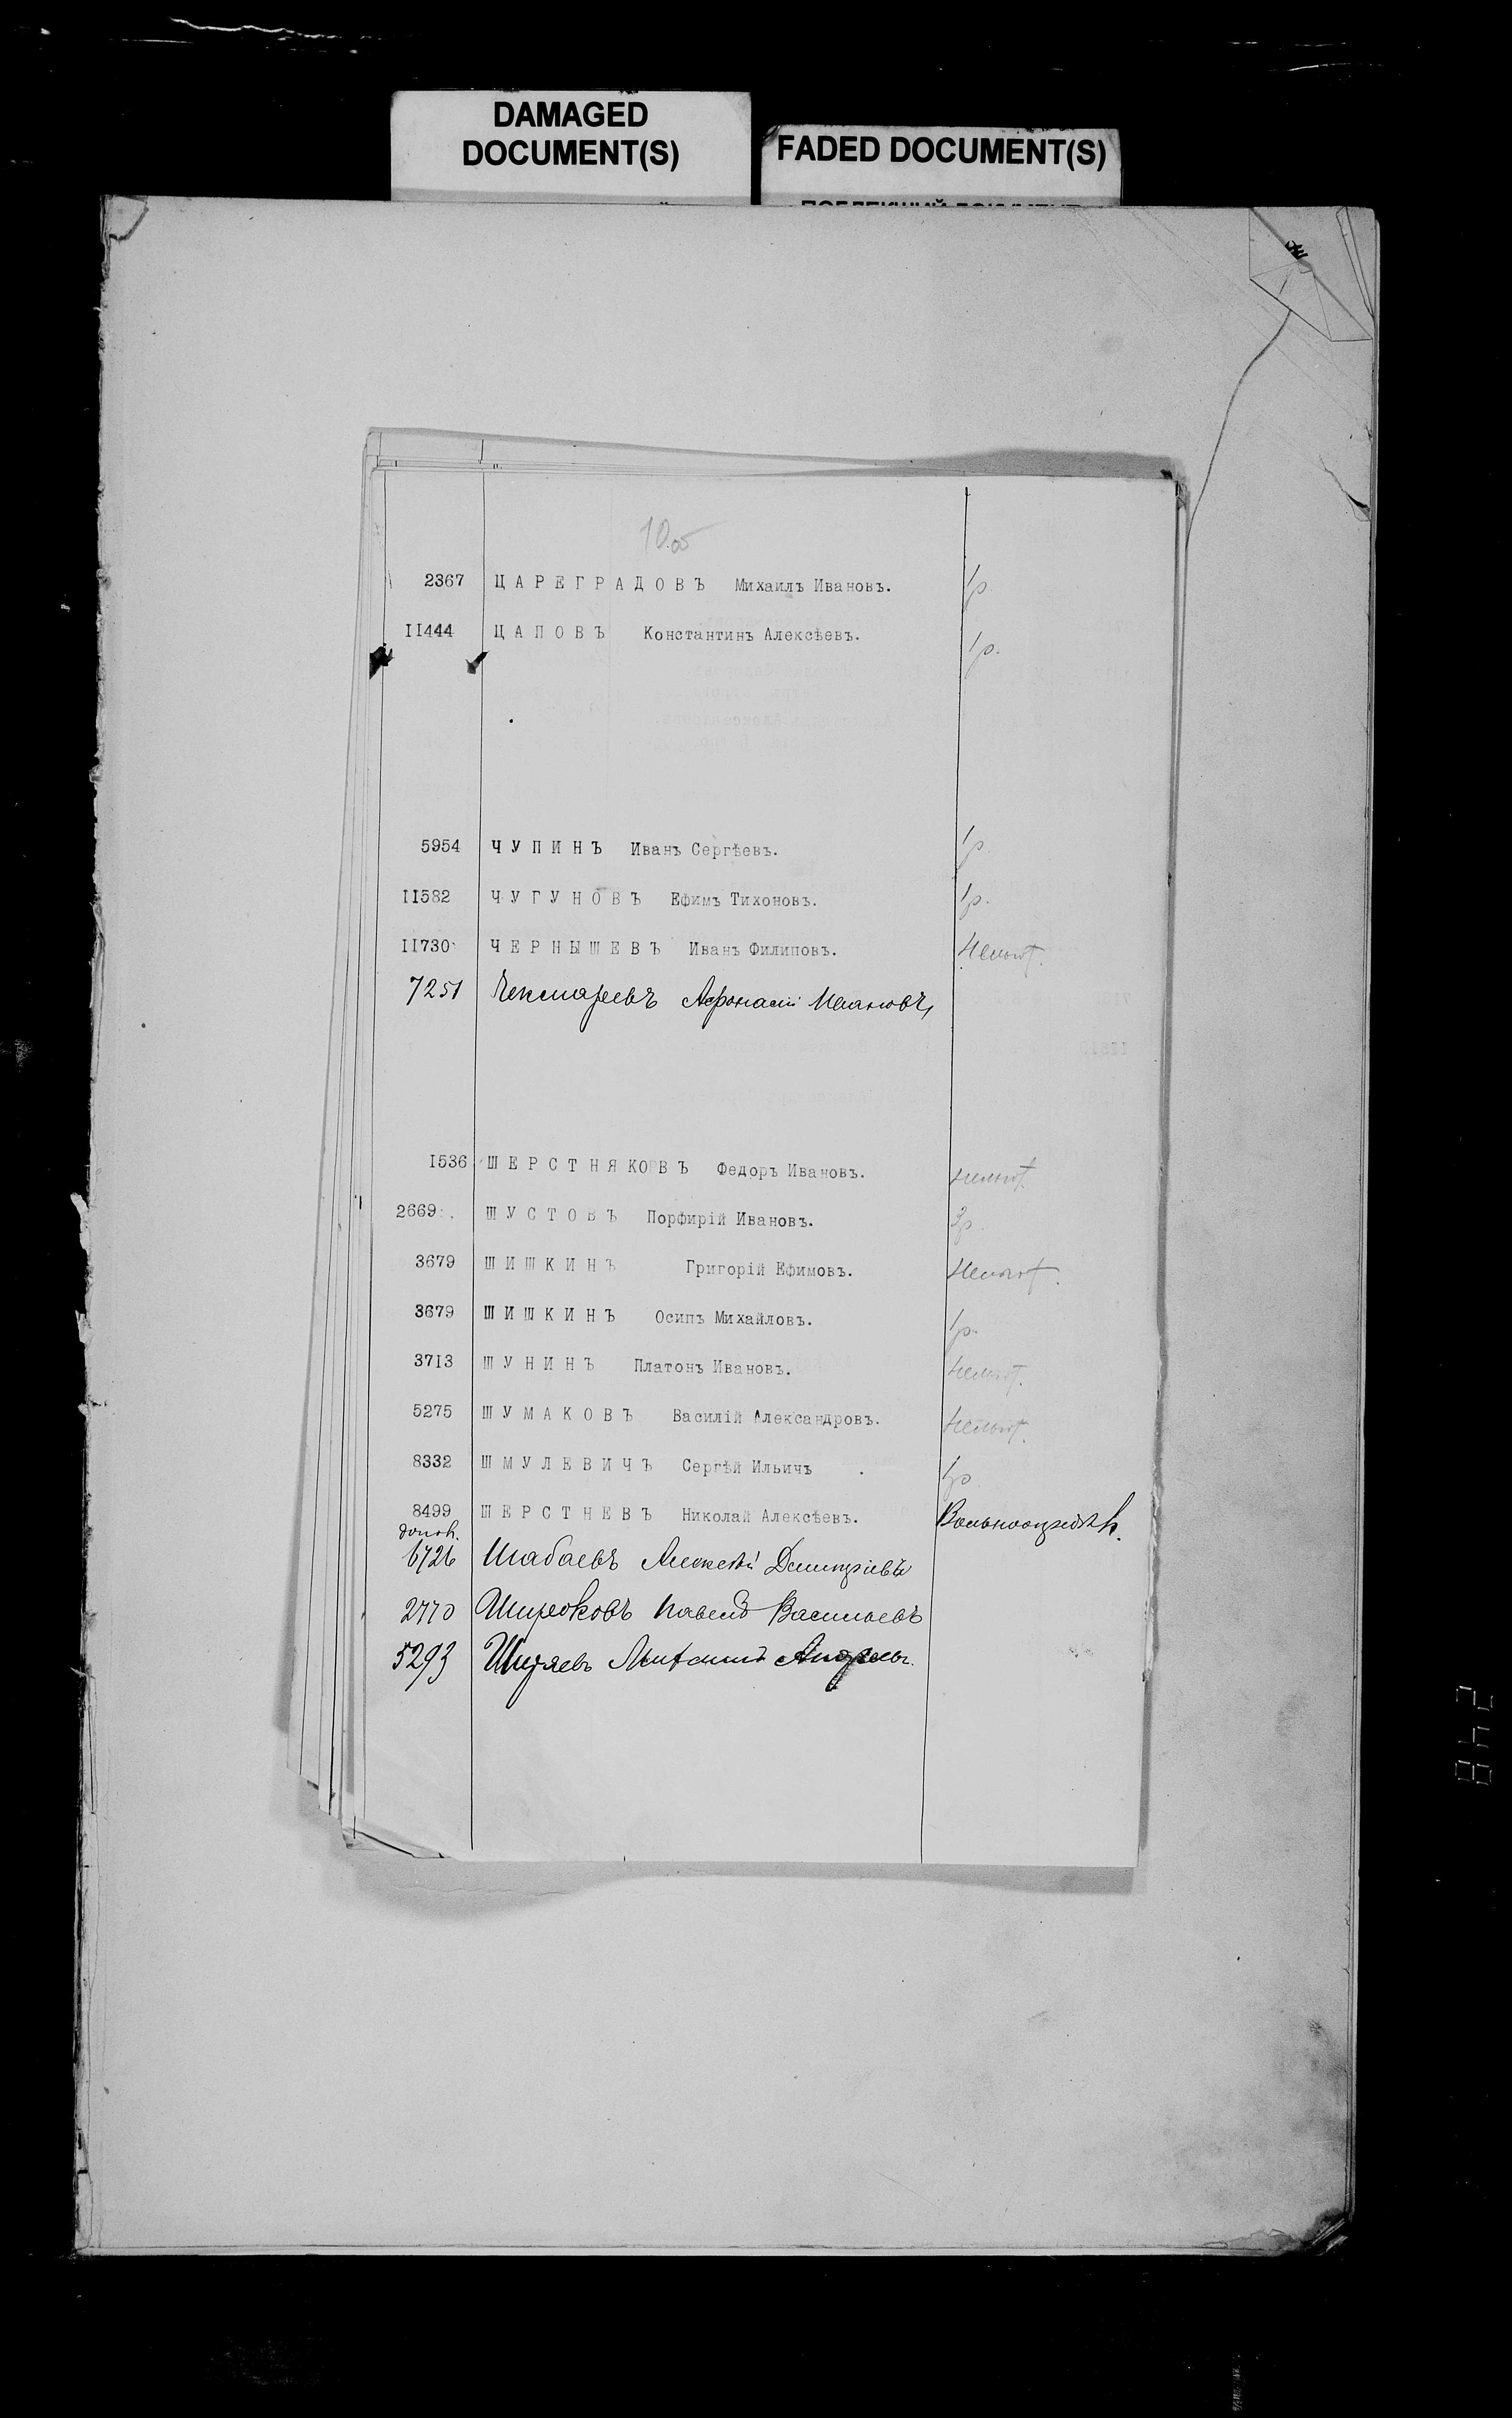 DAMAGED
DOCUMENT(S)
FADED DOCUMENT(S)
2367 ЦАРЕГРАДОВЪ Михаилъ Ивановъ. 1р
II444 ЦАПОВЪ Константинъ Алексѣевъ. 1р.
5954 ЧУПИНЪ Иванъ Сергѣевъ. 1р.
II582 ЧУГУНОВЪ Ефимъ Тихоновъ. 1р.
II730 ЧЕРНЫШЕВЪ Иванъ Филиповъ.
7251 Чекмаревъ Афонасій Ивановъ
I536 ШЕРСТНЯКОВЪ Федоръ Ивановъ.
2669 ШУСТОВЪ Порфирій Ивановъ. 3р.
3679 ШИШКИНЪ Григорій Ефимовъ.
3679 ШИШКИНЪ Осипъ Михайловъ. 1р.
37I3 ШУНИНЪ Платонъ Ивановъ.
5275 ШУМАКОВЪ Василій Александровъ.
8332 ШМУЛЕВИЧЪ Сергѣй Ильичъ 1р
8499 ШЕРСТНЕВЪ Николай Алексѣевъ.
6726 Шабаевъ Алексѣй Дмитріевъ
2770 Широковъ Павелъ Васильевъ
5293 Ширяевъ
248